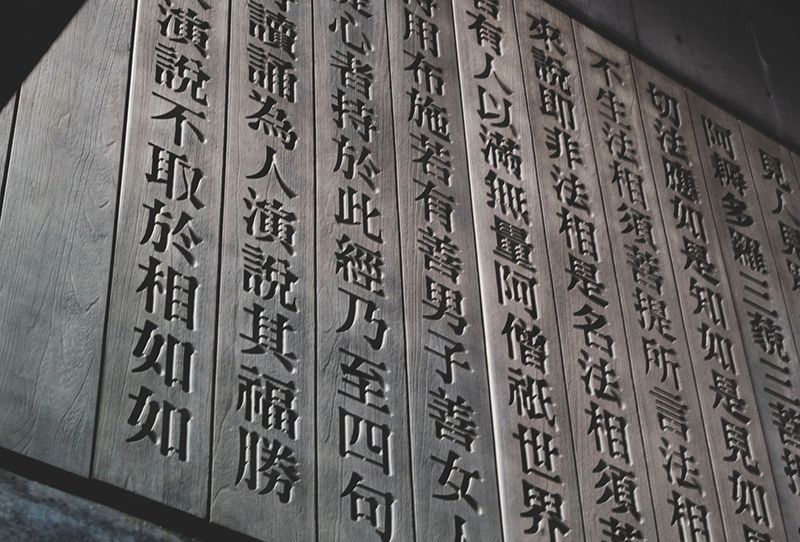 見人見
阿耨多羅三藐三菩
切法應如是知如是見如
不生法相須菩提所言法相
來說即非法相是名法相須菩
若有人以滿無量阿僧祇世界
持用布施若有善男子善女人
心者持於此經乃至四句
持讀誦為人演說其福勝
演說不取於相如如